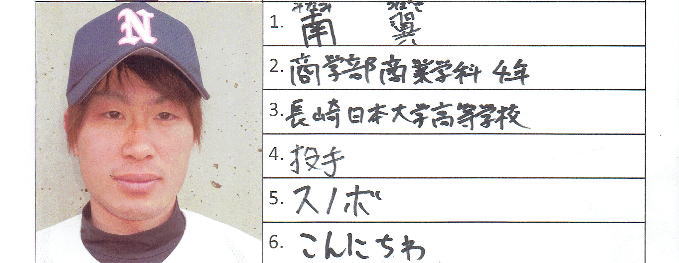 N
1. 南 翼
2. 商学部商業学科 4年
3. 長崎日本大学高等学校
4. 投手
5. スノボ
6. こんにちわ